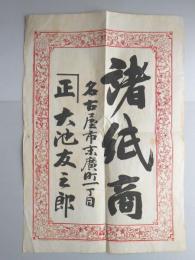 諸紙商
名古屋市末廣町一丁目
正 大池友三郎